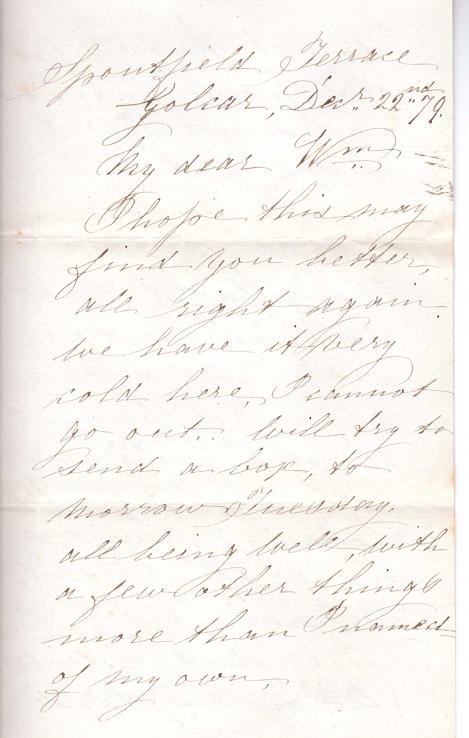 Spoutfield Terrace
Golcar, Decr. 22nd 79.
My dear Wm
I hope this may
find you better,
all right again.
We have it very
cold here, I cannot
go out. Will try to
send a box, to
morrow Tuesday.
all being well, with
a few other things
more than I named
of my own,